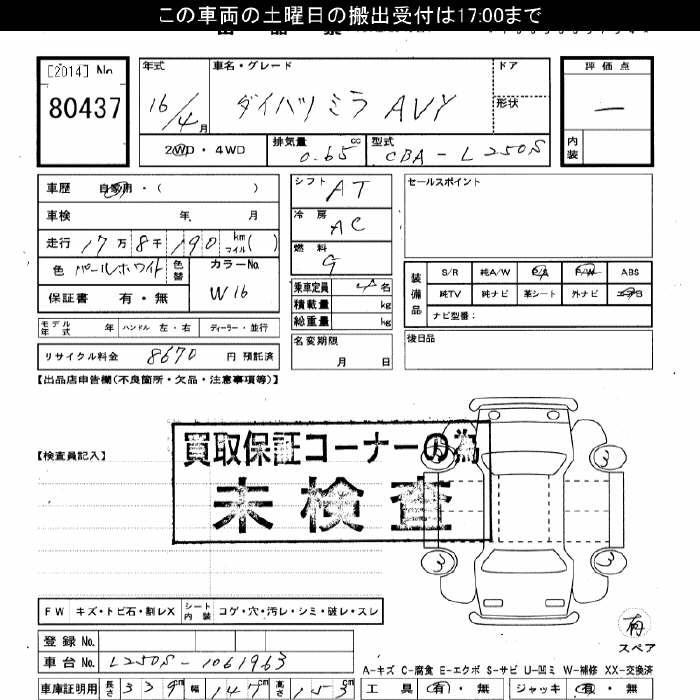 この車両の土曜日の搬出受付は17:00まで
[2014] No
80437
年式
16/4月
車名・グレード
ダイハツミラ AVY
ドア
形状
評価点
—
内装
2WD・4WD
排気量
0.65 cc
型式
CBA-L250S
車歴 自家用・( )
車検 年 月
走行 17万8千190 km マイル( )
色 パールホワイト
色替
カラーNo.
W16
保証書 有・無
モデル年式 年 ハンドル 左・右 ディーラー・並行
リサイクル料金 8670 円 預託済
シフト AT
冷房 AC
燃料 G
乗車定員 4 名
積載量 kg
総重量 kg
名変期限
月 日
セールスポイント
装備品
S/R 純A/W P/S P/W ABS
純TV 純ナビ 革シート 外ナビ エアB
ナビ型番:
後日品
【出品店申告欄(不良箇所・欠品・注意事項等)】
【検査員記入】
買取保証コーナーの為
未検査
3
3
3
FW キズ・トビ石・割レX
シート内装 コゲ・穴・汚レ・シミ・破レ・スレ
有
スペア
登録 No.
車台 No. L250S-1061963
車庫証明用 長さ 339cm 幅 147cm 高さ 153cm
A-キズ C-腐食 E-エクボ S-サビ U-凹ミ W-補修 XX-交換済
工具 有・無 ジャッキ 有・無